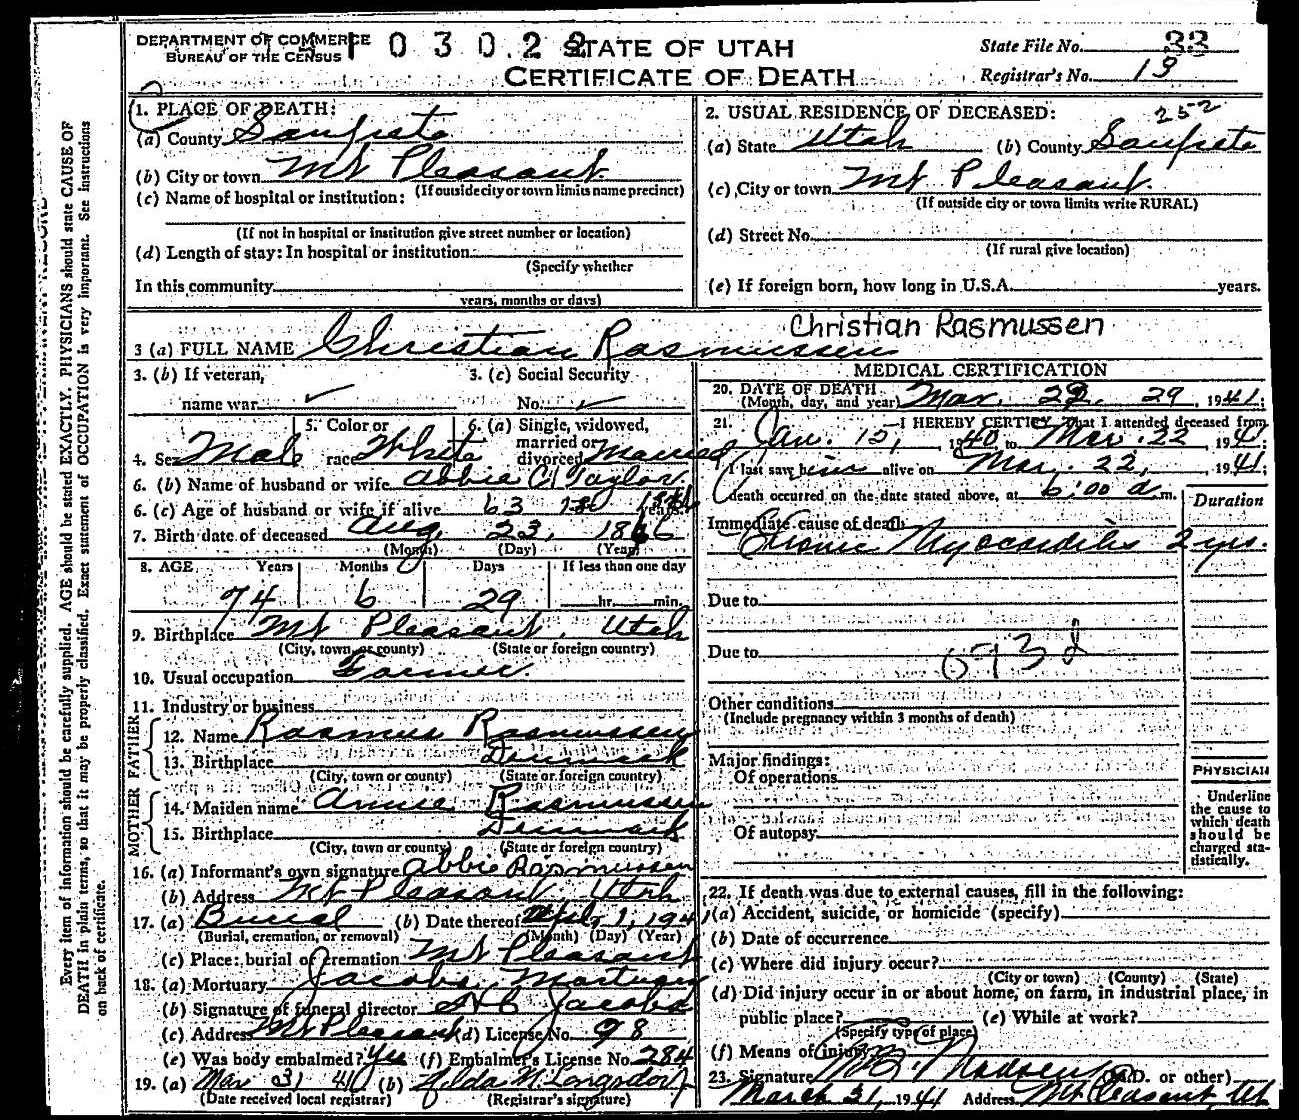 DEPARTMENT OF COMMERCE
BUREAU OF THE CENSUS
0 3 0 2 2
STATE OF UTAH
CERTIFICATE OF DEATH
State File No. 33
Registrar's No. 19
1. PLACE OF DEATH:
(a) County Sanpete
(b) City or town Mt Pleasant
(If outside city or town limits name precinct)
(c) Name of hospital or institution:
(If not in hospital or institution give street number or location)
(d) Length of stay: In hospital or institution
(Specify whether
In this community
years, months or days)
2. USUAL RESIDENCE OF DECEASED:
252
(a) State Utah (b) County Sanpete
(c) City or town Mt Pleasant.
(If outside city or town limits write RURAL)
(d) Street No.
(If rural give location)
(e) If foreign born, how long in U.S.A. years.
Christian Rasmussen
3 (a) FULL NAME Christian Rasmussen
3. (b) If veteran,
name war ✓
3. (c) Social Security
No. ✓
4. Sex Male
5. Color or
race White
6. (a) Single, widowed,
married or
divorced Married
6. (b) Name of husband or wife Abbie C Taylor
6. (c) Age of husband or wife if alive 63 years
7. Birth date of deceased Aug. 23, 1866
(Month) (Day) (Year)
8. AGE Years Months Days If less than one day
74 6 29 hr. min.
9. Birthplace Mt Pleasant, Utah
(City, town or county) (State or foreign country)
10. Usual occupation Farmer.
11. Industry or business
FATHER
12. Name Rasmus Rasmussen
13. Birthplace Denmark
(City, town or county) (State or foreign country)
MOTHER
14. Maiden name Annie Rasmussen
15. Birthplace Denmark
(City, town or county) (State or foreign country)
16. (a) Informant's own signature Abbie Rasmussen
(b) Address Mt Pleasant, Utah
17. (a) Burial (b) Date thereof Apl, 1, 1941
(Burial, cremation, or removal) (Month) (Day) (Year)
(c) Place: burial or cremation Mt Pleasant
18. (a) Mortuary Jacobs Mortuary
(b) Signature of funeral director Jacobs
(c) Address Mt Pleasant (d) License No. 98
(e) Was body embalmed? Yes (f) Embalmer's License No. 284
19. (a) Mar 31 41 (b) Hilda M. Longsdorf
(Date received local registrar) (Registrar's signature)
MEDICAL CERTIFICATION
20. DATE OF DEATH
(Month, day, and year) Mar. 22 29, 1941;
21. I HEREBY CERTIFY That I attended deceased from
Jan. 15, 1940 to Mar. 22, 1941;
I last saw him alive on Mar. 22, 1941;
death occurred on the date stated above, at 6:00 a m.
Duration
Immediate cause of death
Chronic Myocarditis 2 yrs.
Due to
Due to
093d
Other conditions
(Include pregnancy within 3 months of death)
Major findings:
Of operations
Of autopsy
PHYSICIAN
Underline
the cause to
which death
should be
charged sta-
tistically.
22. If death was due to external causes, fill in the following:
(a) Accident, suicide, or homicide (specify)
(b) Date of occurrence
(c) Where did injury occur?
(City or town) (County) (State)
(d) Did injury occur in or about home, on farm, in industrial place, in
public place? (e) While at work?
(Specify type of place)
(f) Means of injury
23. Signature Madsen (M.D. or other)
March 31, 1941 Address Mt Pleasant Ut
Every item of information should be carefully supplied. AGE should be stated EXACTLY. PHYSICIANS should state CAUSE OF
DEATH in plain terms, so that it may be properly classified. Exact statement of OCCUPATION is very important. See Instructions
on back of certificate.